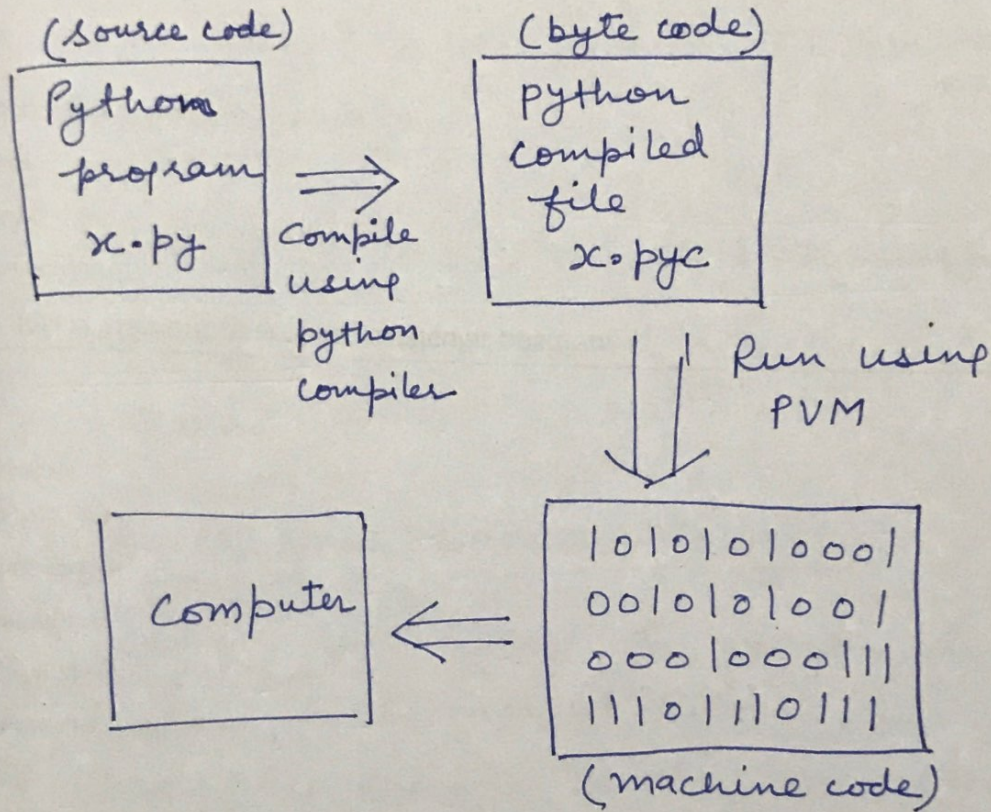 (source code)
Python
program
x.py
Compile
using
python
compiler
(byte code)
python
compiled
file
x.pyc
Run using
PVM
10101010001
0010101001
0001000111
11101110111
(machine code)
Computer